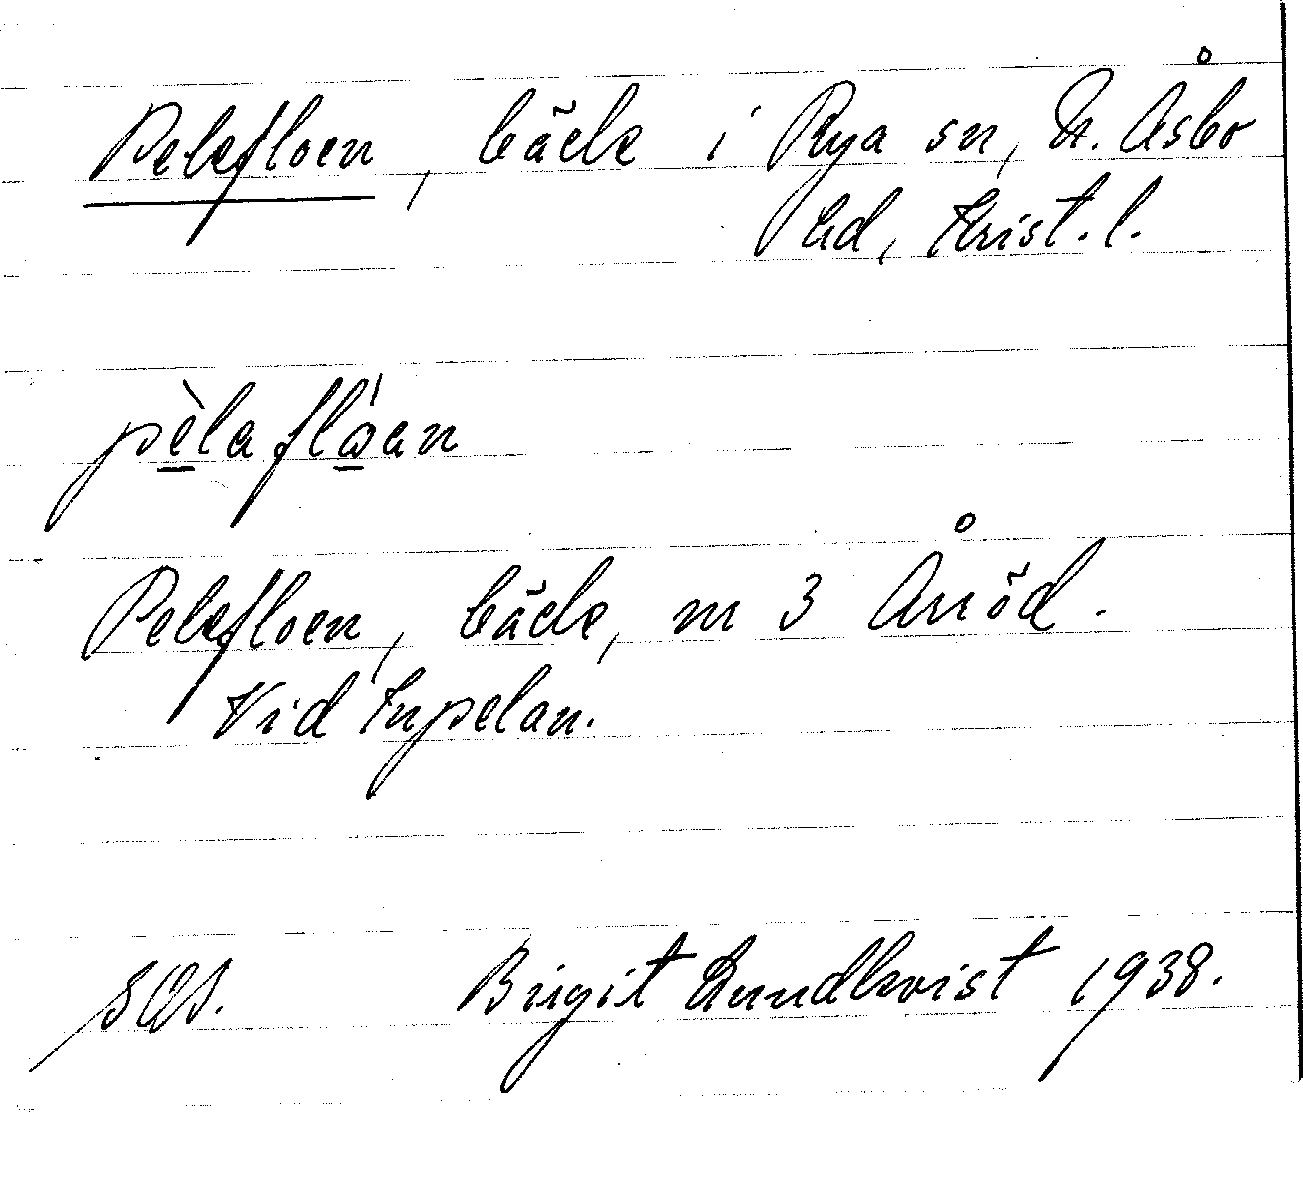 Pelefloen, bäck i Rya sn, N. Åsbo
hd, Krist. l.
pèlaflóan
Pelefloen, bäck, nr 3 Arröd.
Vid Krpelan.
SOS. Birgit Lundkvist 1938.